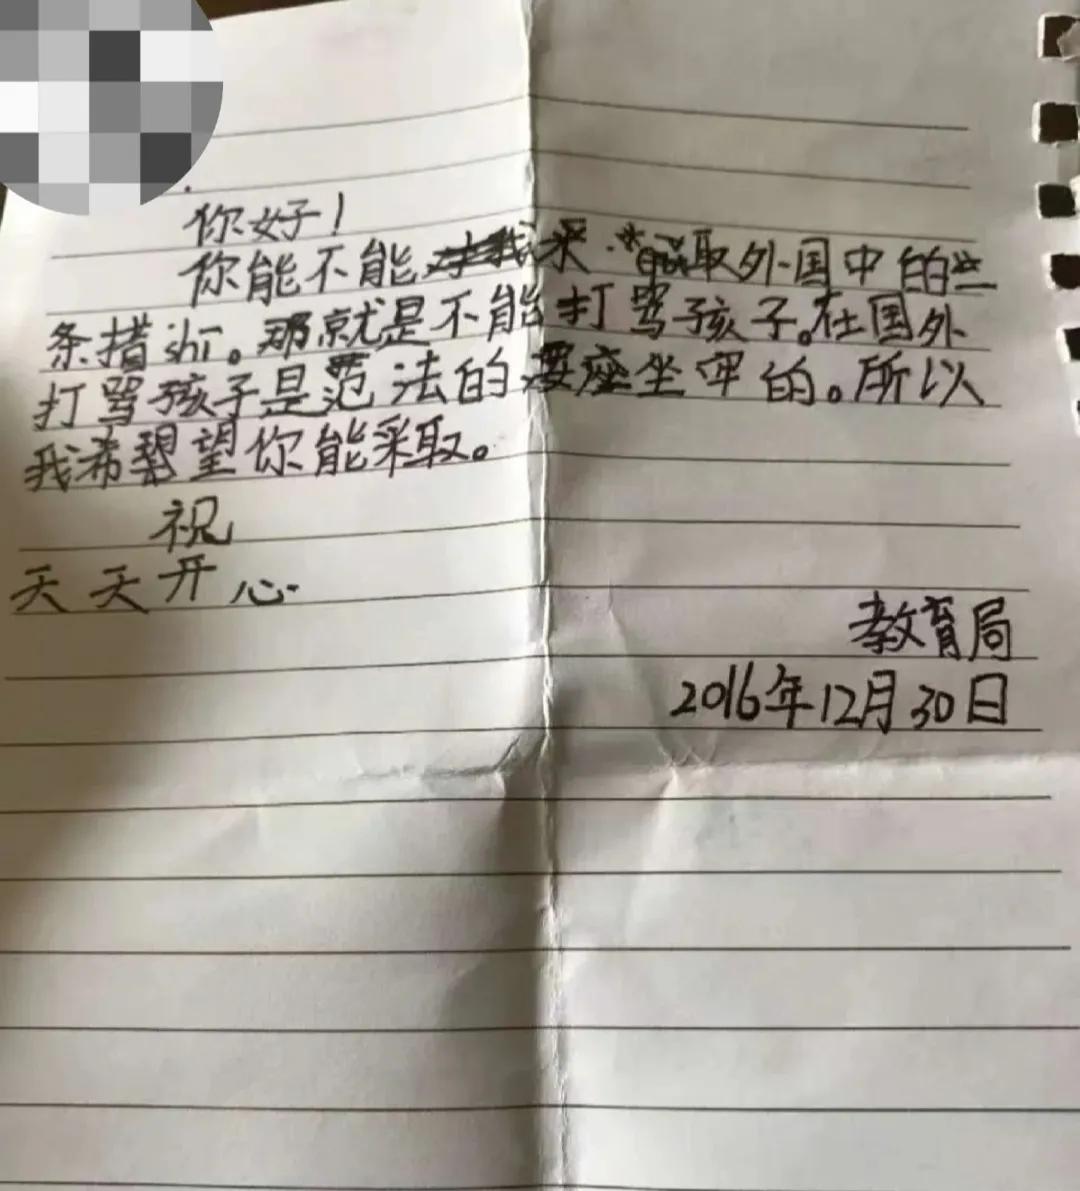 你好！
你能不能采取外国中的些
条措shī。那就是不能打骂孩子。在国外
打骂孩子是范法的要座坐牢的。所以
我希望你能采取。
祝
天天开心.
教育局
2016年12月30日